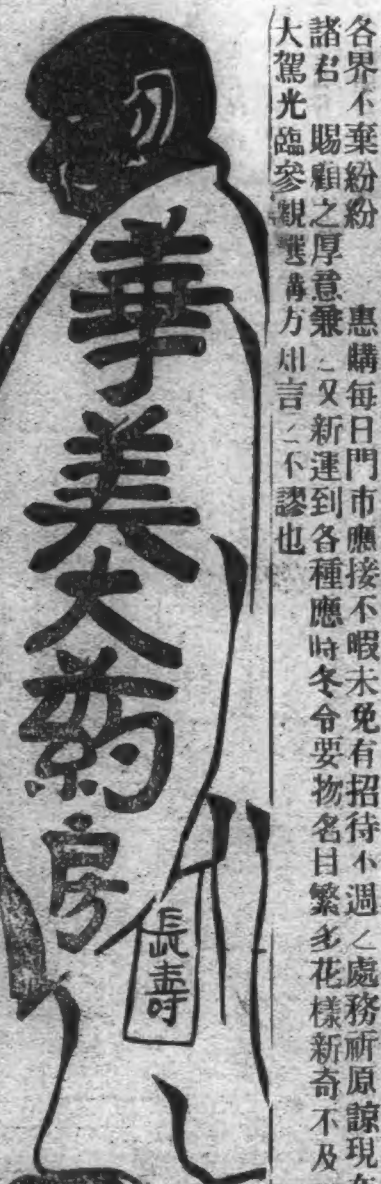 各界不棄紛紛 惠購每日門市應接不暇未免有招待小週之處務祈原諒現在
諸君 賜顧之厚意兼之又新運到各種應時冬令要物名目繁多花樣新奇不及
大駕光臨參觀選購方知言之不謬也
華美大药房
長壽